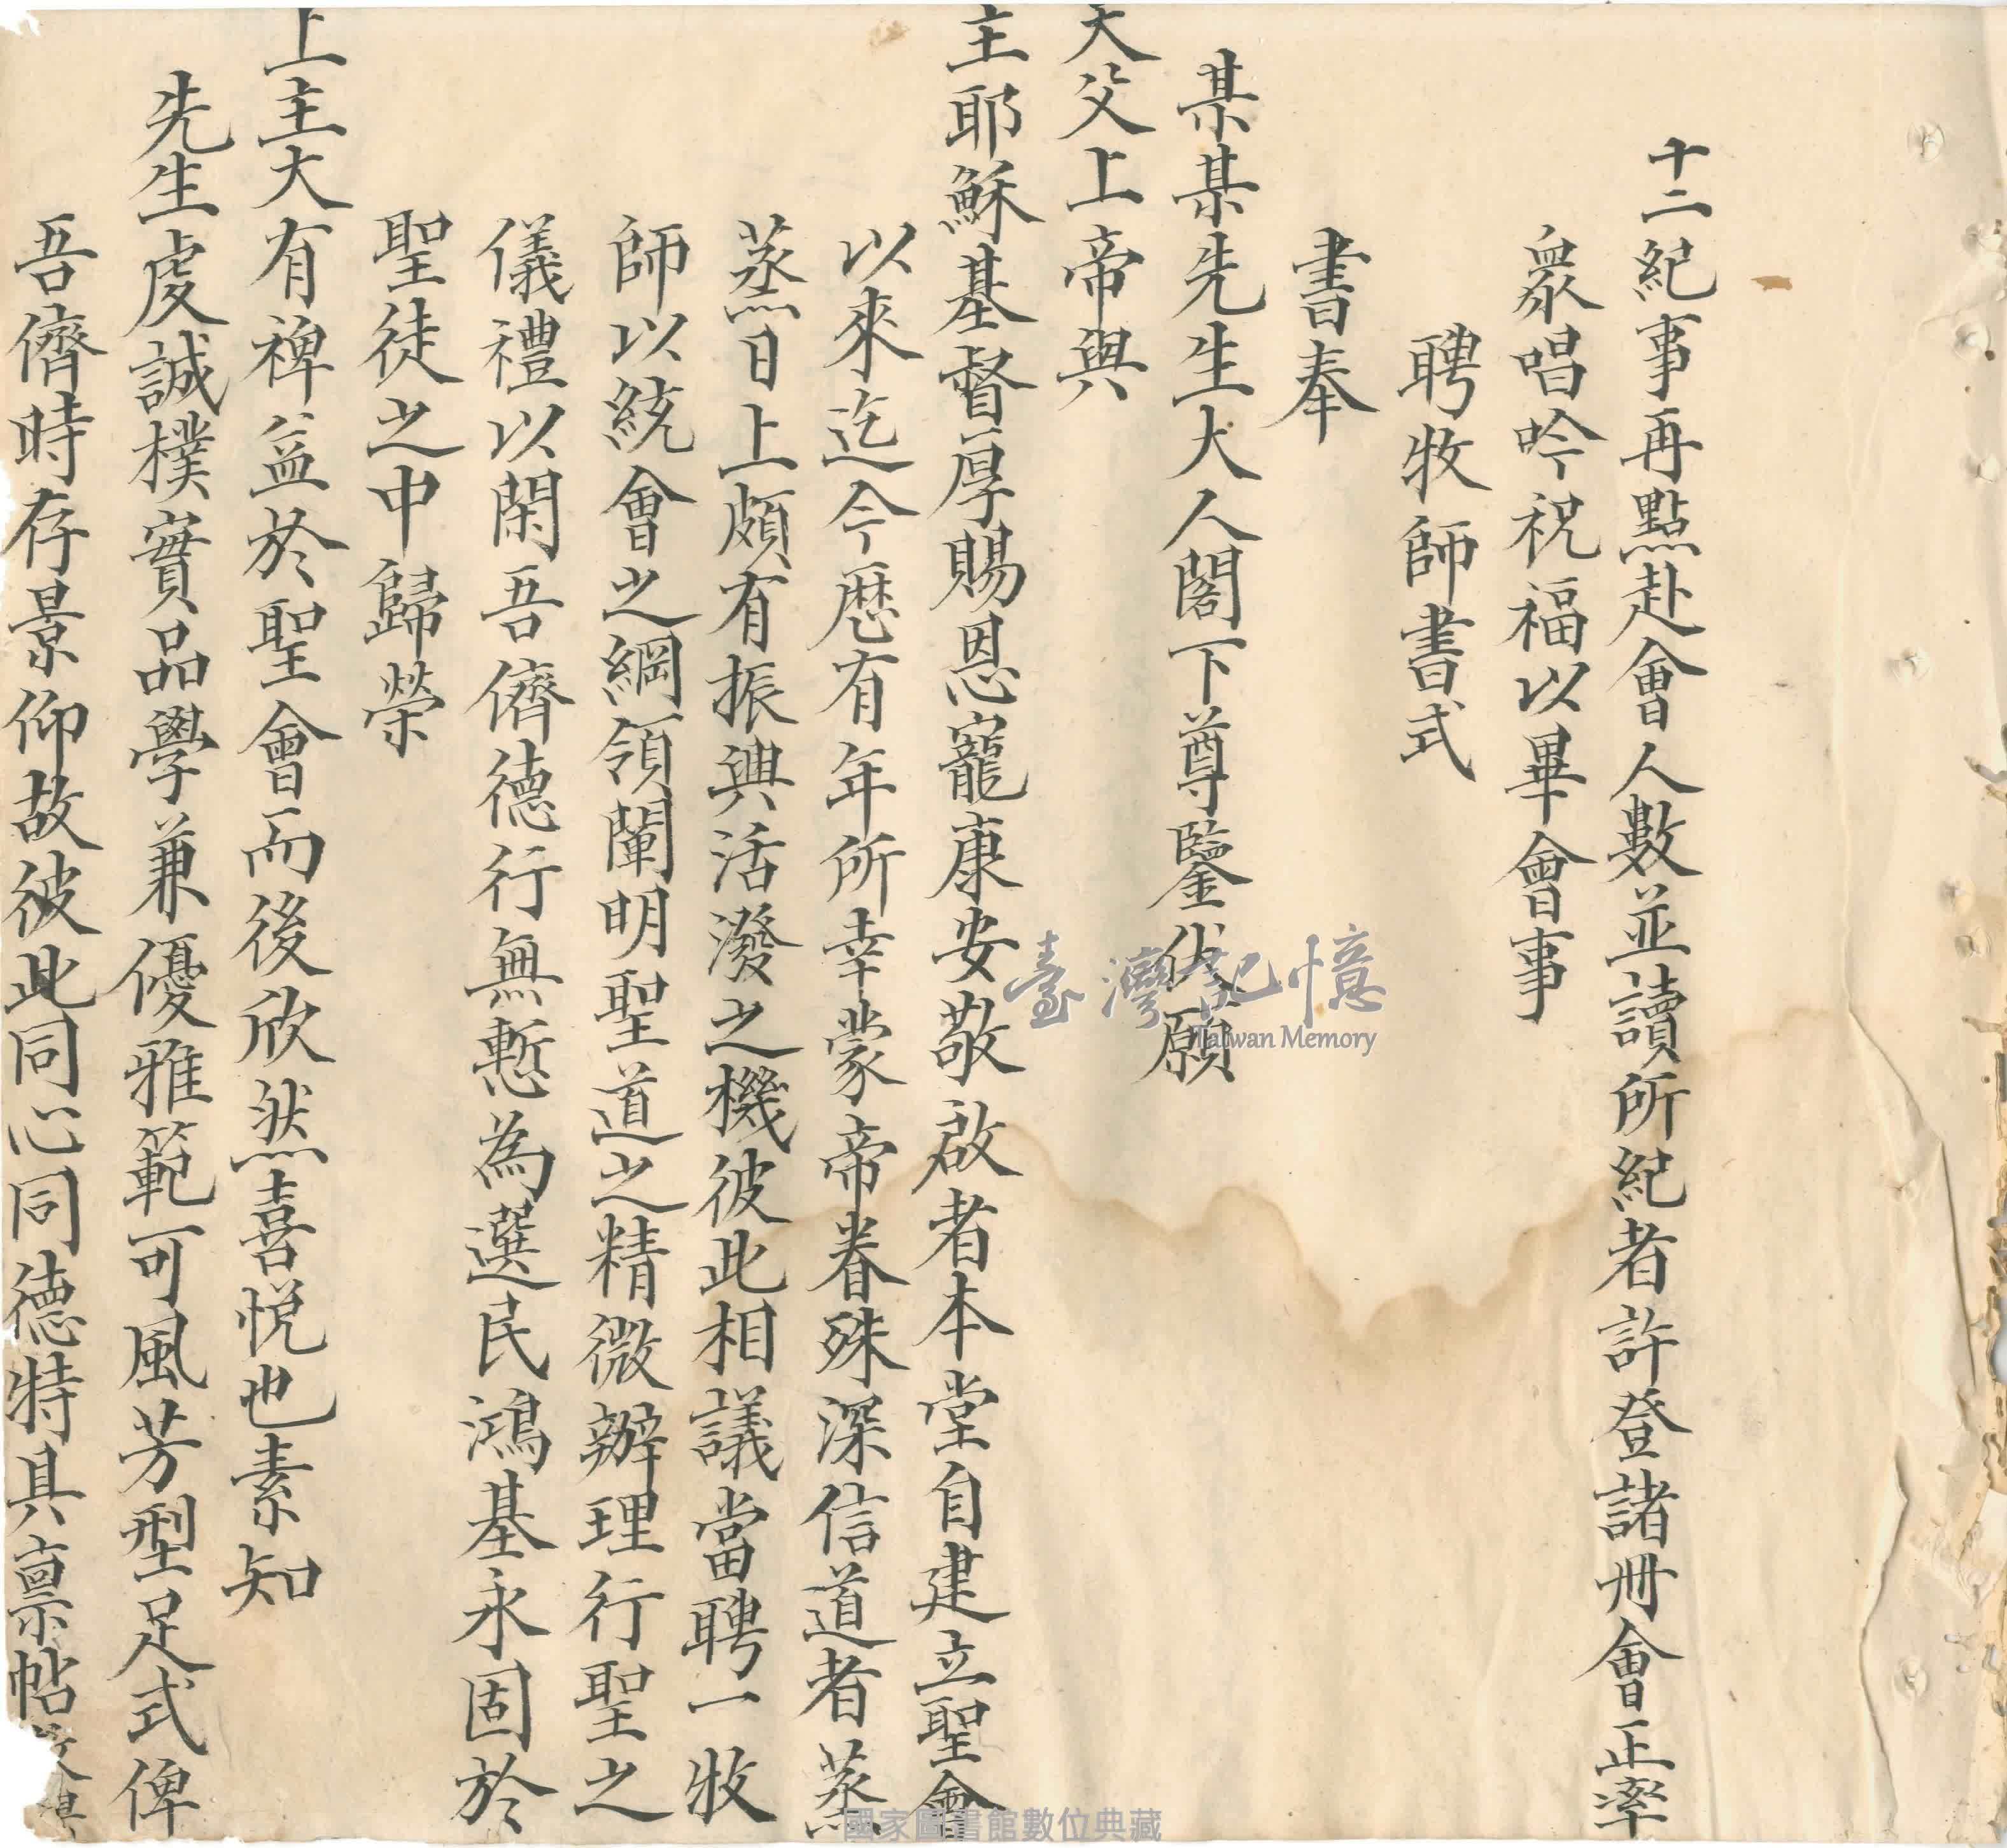 十二紀事再點赴會人數並讀所紀者許登諸冊會正率
衆唱吟祝福以畢會事
聘牧師書式
書奉
某某先生大人閣下尊鑒伏願
天父上帝與
主耶穌基督厚賜恩寵康安敬啟者本堂自建立聖會
以來迄今歷有年所幸蒙帝眷殊深信道者蒸
蒸日上頗有振興活潑之機彼此相議當聘一牧
師以統會之綱領闡明聖道之精微辦理行聖之
儀禮以閑吾儕德行無慙為選民鴻基永固於
聖徒之中歸榮
上主大有裨益於聖會而後欣然喜悅也素知
先生虔誠樸實品學兼優雅範可風芳型足式俾
吾儕時存景仰故彼此同心同德特具禀帖
臺灣記憶
Taiwan Memory
國家圖書館數位典藏